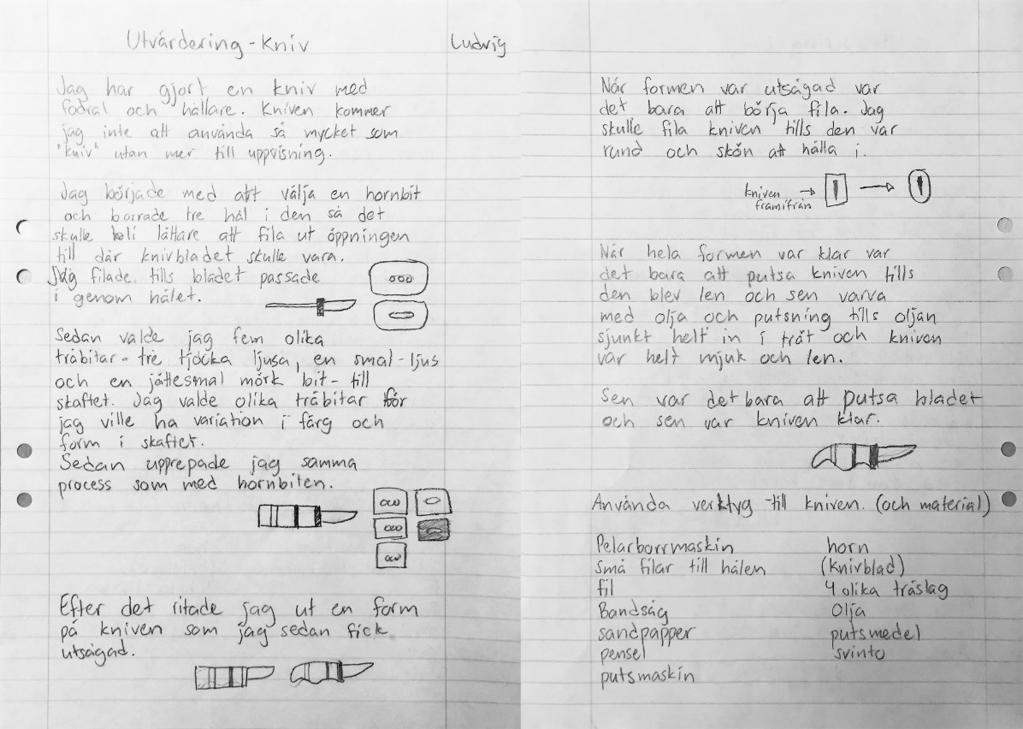 Utvärdering - Kniv
Ludvig
Jag har gjort en kniv med
fodral och hållare. Kniven kommer
jag inte att använda så mycket som
"kniv" utan mer till uppvisning.
Jag började med att välja en hornbit
och borrade tre hål i den så det
skulle bli lättare att fila ut öppningen
till där knivbladet skulle vara.
Jag filade tills bladet passade
i genom hålet.
Sedan valde jag fem olika
träbitar - tre tjocka ljusa, en smal - ljus
och en jättesmal mörk bit - till
skaftet. Jag valde olika träbitar för
jag ville ha variation i färg och
form i skaftet.
Sedan upprepade jag samma
process som med hornbiten.
Efter det ritade jag ut en form
på kniven som jag sedan fick
utsågad.
När formen var utsågad var
det bara att börja fila. Jag
skulle fila kniven tills den var
rund och skön att hålla i.
kniven →
framifrån
När hela formen var klar var
det bara att putsa kniven tills
den blev len och sen varva
med olja och putsning tills oljan
sjunkt helt in i trät och kniven
var helt mjuk och len.
Sen var det bara att putsa bladet
och sen var kniven klar.
Använda verktyg till kniven. (och material)
Pelarborrmaskin
små filar till hålen
fil
Bandsåg
sandpapper
pensel
putsmaskin
horn
(knivblad)
4 olika träslag
Olja
putsmedel
svinto